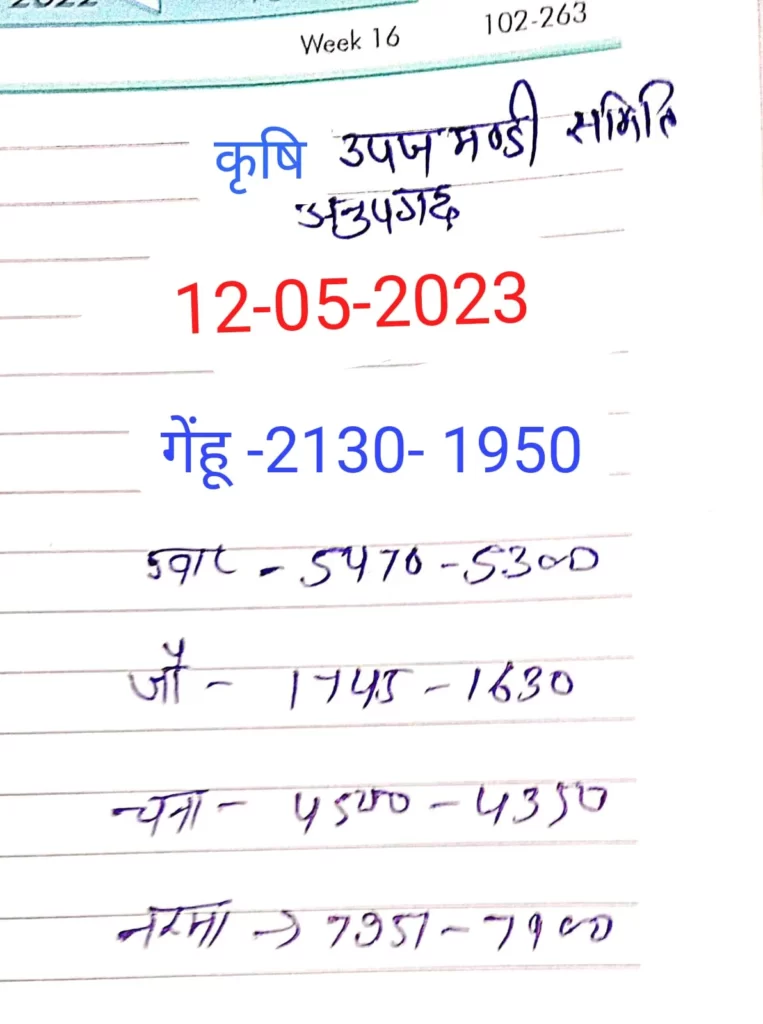 Week 16 102-263
कृषि उपज मण्डी समिति
अनुपगढ
12-05-2023
गेंहू -2130- 1950
ग्वार - 5470-5300
जौ - 1745 - 1630
चना - 4500 - 4350
नरमा → 7951 - 7900